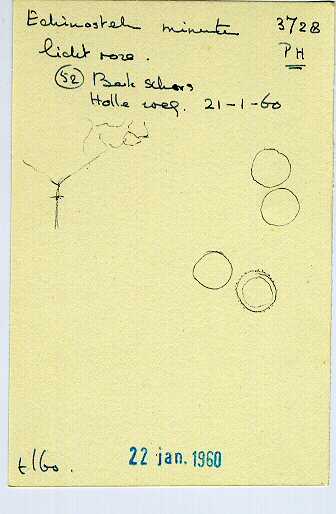 Echinostel minute 3728
licht rose. PH
52 Beuk schors
Holle weg. 21-1-60
t/60.
22 jan. 1960